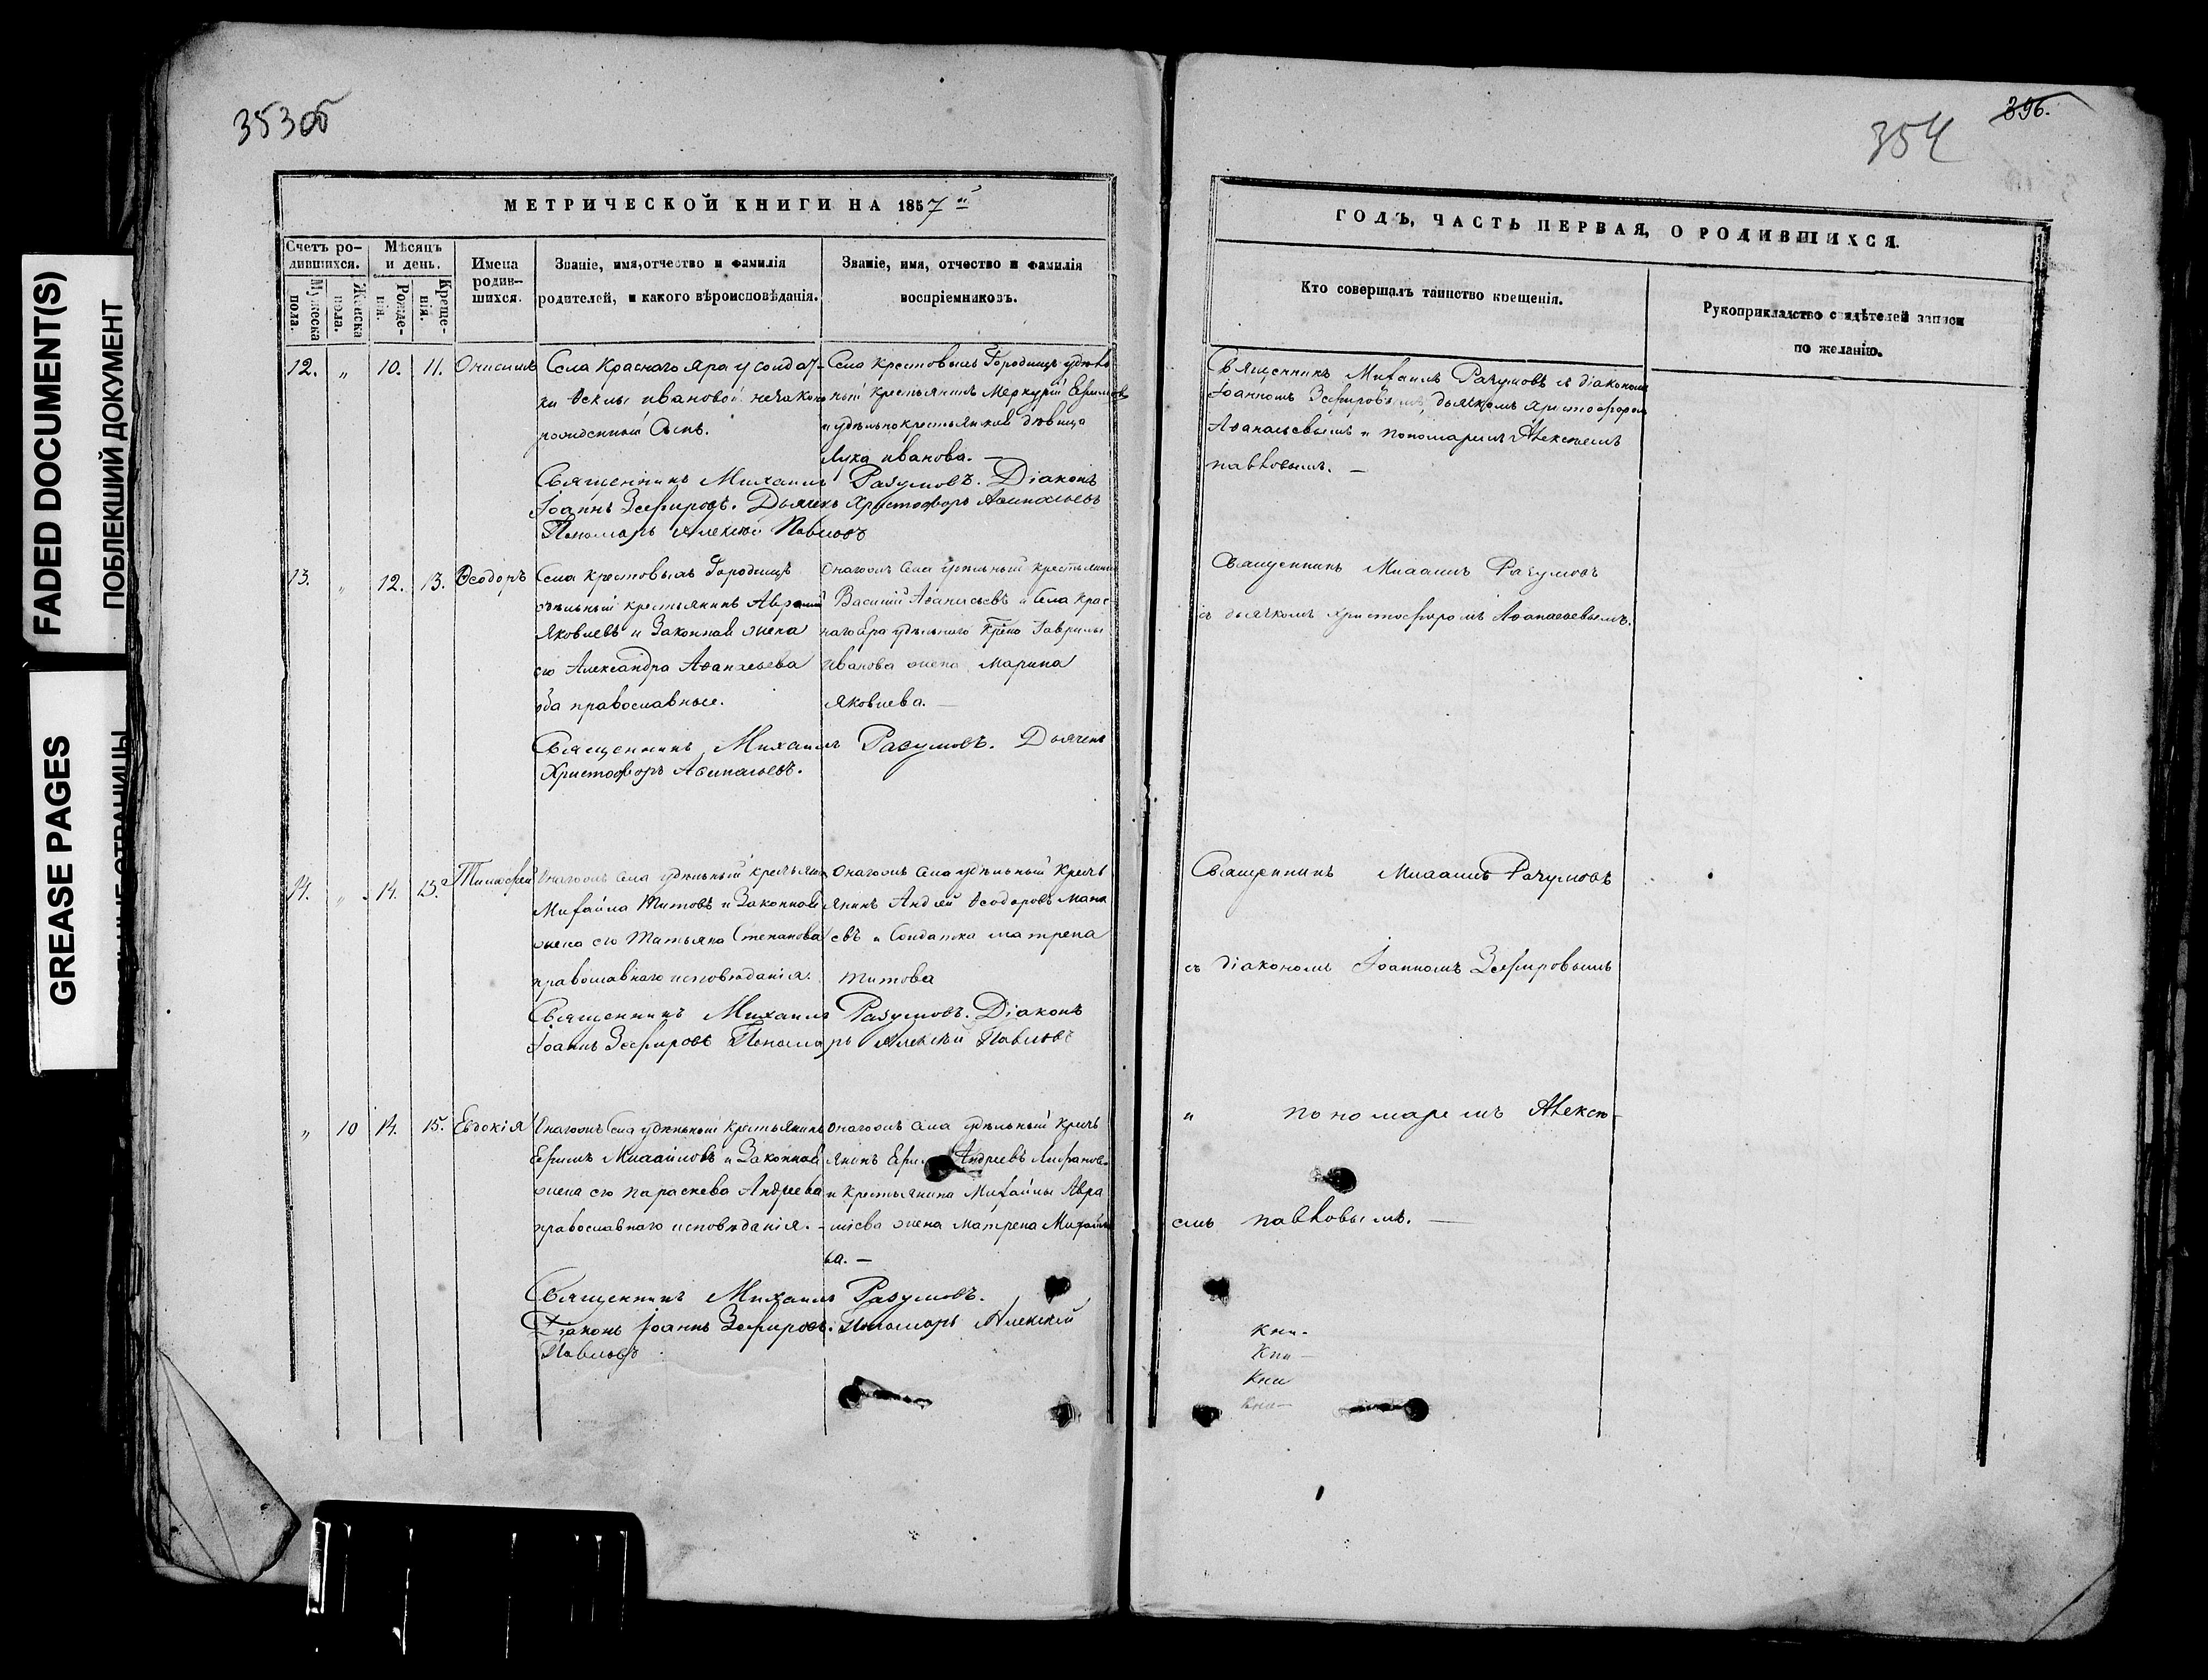 353об
354
396.
FADED DOCUMENT(S)
ПОБЛЕКШИЙ ДОКУМЕНТ
GREASE PAGES
МЕТРИЧЕСКОЙ КНИГИ НА 1857й
Счетъ ро-
дившихся.
Мѣсяцъ
и день.
Мужеска
пола.
Женска
пола.
Рожде-
нія.
Креще-
нія.
Имена
родив-
шихся.
Званіе, имя, отчество и фамилія
родителей, и какого вѣроисповѣданія.
Званіе, имя, отчество и фамилія
воспріемниковъ.
12. „ 10. 11. Онисимъ
Села Краснаго Яра у солдат-
ки Ѳеклы Ивановой незаконо
рожденный Сынъ.
Села Крестовыхъ Городищъ удѣль
ный крестьянинъ Меркурій Ефимовъ
и удѣльнокрестьянская дѣвица
Ивановa. —
Священникъ Михаилъ Разумовъ. Діаконъ
Іоаннъ Зефировъ. Дьячекъ Христофоръ Аѳанасьевъ
Пономарь Алексѣй Павловъ
13. „ 12. 13. Ѳеодоръ
Села Крестовыхъ Городищъ
удѣльный крестьянинъ Аврамій
Яковлевъ и Законная жена
его Александра Аѳанасьева
оба православные.
Онагожъ Села удѣльный крестьянинъ
Василій Аѳанасьевъ и Села Крас-
наго Яра удѣльнаго Гаврилы
Иванова жена Марина
Яковлева. —
Священникъ Михаилъ Разумовъ. Дьячекъ
Христофоръ Аѳанасьевъ.
14. „ 14. 15. Тимофей
Онагожъ Села удѣльный
Михайла Титовъ и Законная
жена его Татьяна Степанова
православнаго исповѣданія.
Онагожъ Села удѣльный кресть
янинъ Андрей Ѳеодоровъ
и Солдатка Матрена
Титова
Священникъ Михаилъ Разумовъ. Діаконъ
Іоаннъ Зефировъ Пономарь Алексѣй Павловъ
„ 10 14. 15. Евдокія
Онагожъ Села удѣльный Крестьянинъ
Ефимъ Михайловъ и Законная
жена его Параскева Андреева
православнаго исповѣданія. —
Онагожъ Села удѣльный кресть
янинъ Андреевъ
и Крестьянина Михайлы Авра
міева жена Матрена Михайло
ва. —
Священникъ Михаилъ Разумовъ.
Діаконъ Іоаннъ Зефировъ. Пономарь Алексѣй
Павловъ
ГОДЪ, ЧАСТЬ ПЕРВАЯ, О РОДИВШИХСЯ.
Кто совершалъ таинство крещенія.
Рукоприкладство свидѣтелей записи
по желанію.
Священникъ Михаилъ Разумовъ съ діакономъ
Іоанномъ Зефировымъ, дьячкомъ Христофоромъ
Аѳанасьевымъ и пономаремъ Алексѣемъ
Павловымъ. —
Священникъ Михаилъ Разумовъ
съ дьячкомъ Христофоромъ Аѳанасьевымъ.
Священникъ Михаилъ Разумовъ
съ діакономъ Іоанномъ Зефировымъ
и пономаремъ Алексѣ-
емъ Павловымъ. —
Кни-
Кни-
Кни
Кни-